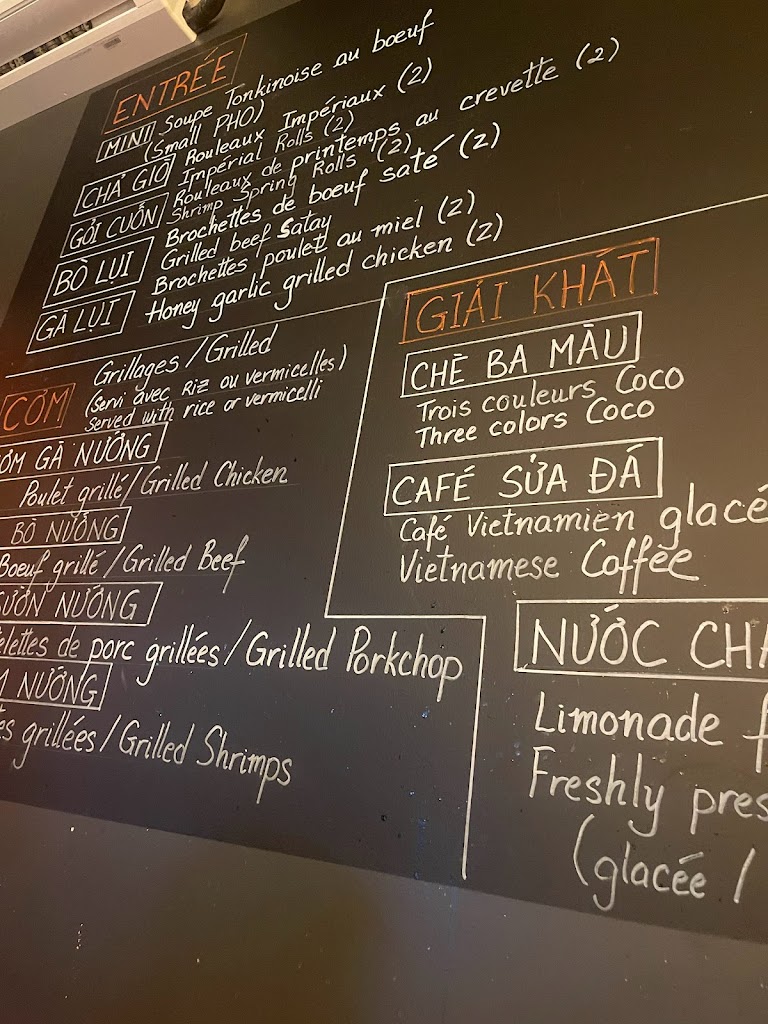 ENTRÉE
MINI Soupe Tonkinoise au boeuf
(Small PHO)
CHẢ GIO Rouleaux Impériaux (2)
Impérial Rolls (2)
GỎI CUỐN Rouleaux de printemps au crevette (2)
Shrimp Spring Rolls (2)
BÒ LỤI Brochettes de boeuf saté (2)
Grilled beef Satay
GÀ LỤI Brochettes poulet au miel (2)
Honey garlic grilled chicken (2)
CƠM Grillages / Grilled
(Servi avec Riz ou vermicelles)
Served with rice or vermicelli
ƠM GÀ NƯỚNG
Poulet grillé / Grilled Chicken
BÒ NƯỚNG
Boeuf grillé / Grilled Beef
SƯỜN NƯỚNG
elettes de porc grillées / Grilled Porkchop
M NƯỚNG
es grillées / Grilled Shrimps
GIẢI KHÁT
CHÈ BA MÀU
Trois couleurs Coco
Three colors Coco
CAFÉ SỬA ĐÁ
Café Vietnamien glacé
Vietnamese Coffee
NƯỚC CHA
Limonade f
Freshly pres
(glacée /